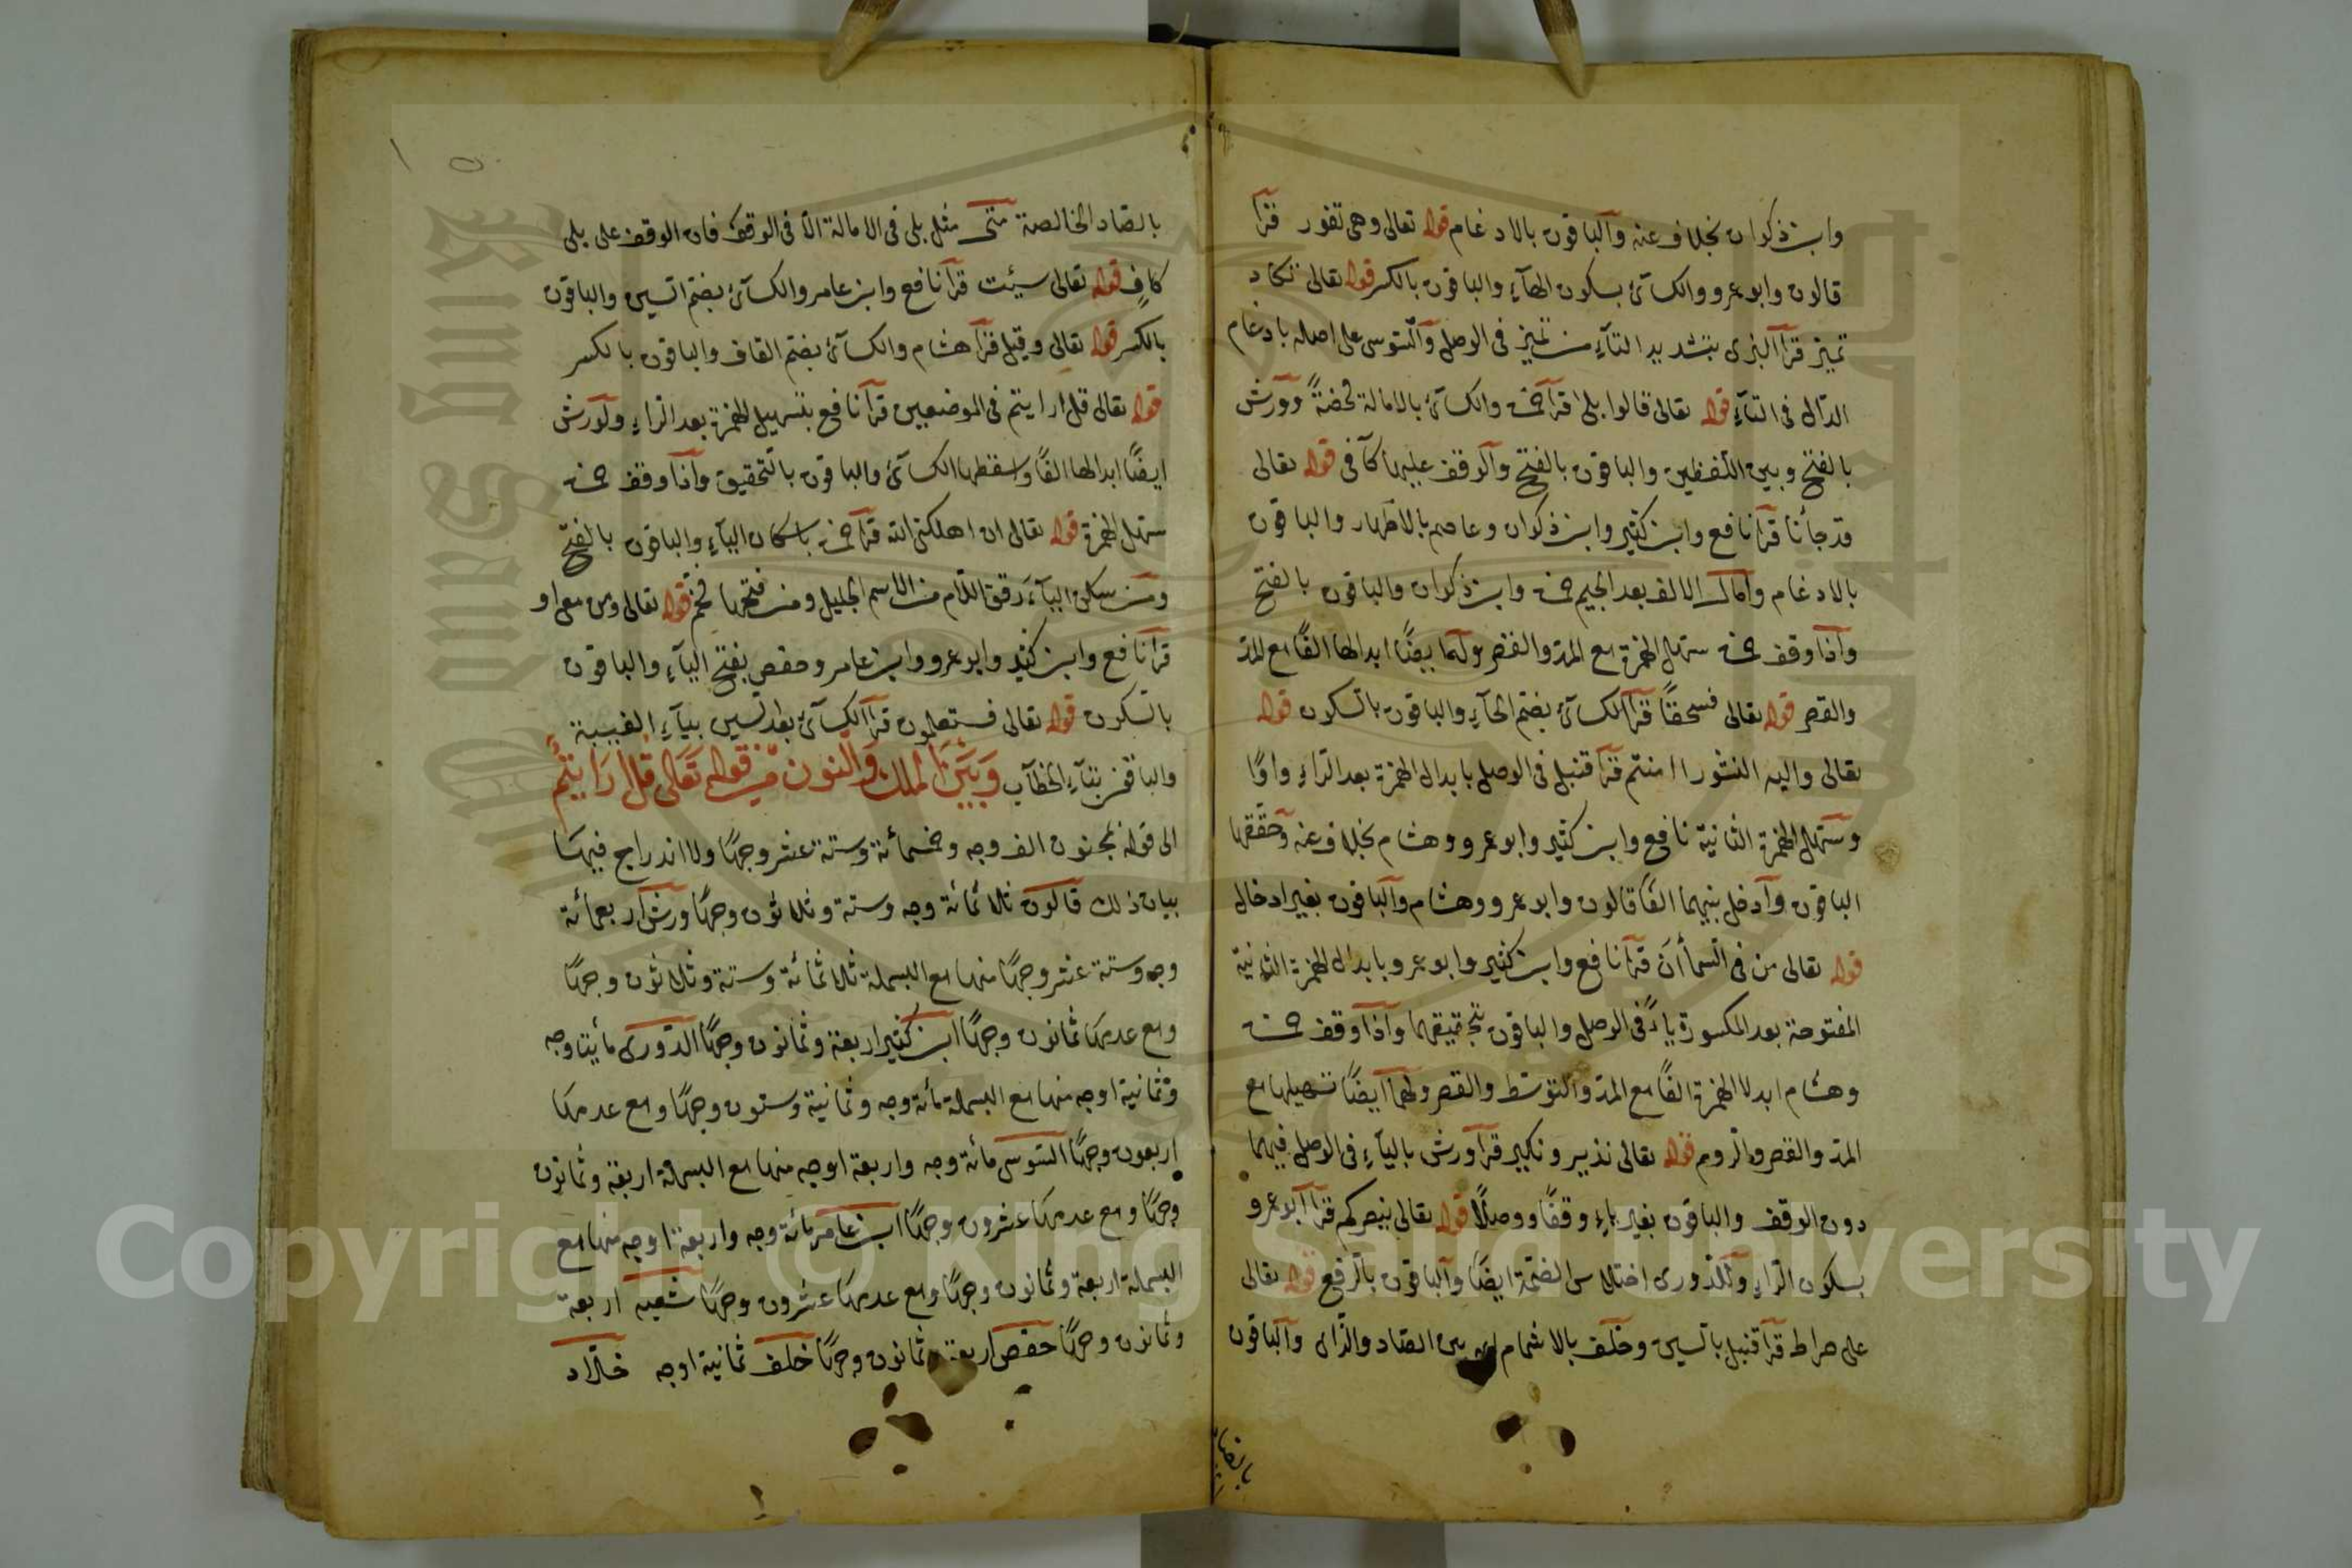 وابن ذكوان بخلاف عنه والباقون بالادغام قوله تعالى وهى تفور قرآ
قالون وابو عمرو والكسآئى بسكون الهآءِ والباقون بالكسر قوله تعالى تكاد
تميز قرآ البزى بتشديد التآءِ من تميز فى الوصل والسوسى على اصله بادغام
الدال فى التآءِ قوله تعالى قالوا بلى قرآ والكسآئى بالامالة محضةً وورش
بالفتح وبين اللفظين والباقون بالفتح والوقف عليها كآفى قوله تعالى
قد جآنا قرآ نافع وابن كثير وابن ذكوان وعاصم بالاظهار والباقون
بالادغام وامال الالف بعد الجيم وابن ذكوان والباقون بالفتح
واذا وقف سهل الهمزة مع المد والقصر وله ايضًا ابدالها الفًا مع المد
والقصر قوله تعالى فسحقًا قرآ الكسآئى بضم الحآءِ والباقون بالسكون قوله
تعالى واليه النشور اامنتم قرآ قنبل فى الوصل بابدال الهمزة بعد الرآءِ واوًا
وسهل الهمزة الثانية نافع وابن كثير وابو عمرو وهشام بخلاف عنه وحققها
الباقون وادخل بينهما الفًا قالون وابو عمرو وهشام والباقون بغير ادخال
قوله تعالى من فى السمآ أن قرآ نافع وابن كثير وابو عمرو بابدال الهمزة الثانية
المفتوحة بعد المكسورة يآءً فى الوصل والباقون بتحقيقهما واذا وقف
وهشام ابدلا الهمزة الفًا مع المد والتوسط والقصر ولهما ايضًا تسهيلها مع
المد والقصر والروم قوله تعالى نذير ونكير قرآ ورش باليآءِ فى الوصل فيهما
دون الوقف والباقون بغير يآءٍ وقفًا ووصلًا قوله تعالى ينصركم قرآ ابو عمرو
بسكون الرآءِ وللدورى اختلاس الضمة ايضًا والباقون بالرفع قوله تعالى
على صراط قرآ قنبل بالسين وخلف بالاشمام اى بين الصاد والزاى والباقون
بالصاد
بالصاد الخالصة متى مثل بلى فى الامالة الا فى الوقف فان الوقف على بلى
كافٍ قوله تعالى سيئت قرآ نافع وابن عامر والكسآئى بضم السين والباقون
بالكسر قوله تعالى وقيل قرآ هشام والكسآئى بضم القاف والباقون بالكسر
قوله تعالى قل ارايتم فى الموضعين قرآ نافع بتسهيل الهمزة بعد الرآءِ ولورش
ايضًا ابدالها الفًا واسقطها الكسآئى والباقون بالتحقيق واذا وقف
سهل الهمزة قوله تعالى ان اهلكنى الله قرآ باسكان اليآءِ والباقون بالفتح
ومن سكن اليآءَ رقق اللام من الاسم الجليل ومن فتحها فخم قوله تعالى ومن معى او
قرآ نافع وابن كثير وابو عمرو وابن عامر وحفص بفتح اليآءِ والباقون
بالسكون قوله تعالى فستعلمون قرآ الكسآئى بعد السين بيآءِ الغيبية
والباقون بتآءِ الخطآب وَبَيْنَ الملك وَالنون من قوله تَعَالى قل ارَايتُم
الى قوله بمجنون الف وجه وخمسمائة وستة عشر وجهًا ولا اندراج فيها
بيان ذلك قالون ثلاثمائة وجه وستة وثلاثون وجهًا ورش اربعمائة
وجه وستة عشر وجهًا منها مع البسملة ثلاثمائة وستة وثلاثون وجهًا
ومع عدمها ثمانون وجهًا ابن كثير اربعة وثمانون وجهًا الدورى مأيتا وجه
وثمانية اوجه منها مع البسملة مائة وجه وثمانية وستون وجهًا ومع عدمها
اربعون وجهًا السوسى مائة وجه واربعة اوجه منها مع البسملة اربعة وثمانون
وجهًا ومع عدمها عشرون وجهًا ابن عامر مائة وجه واربعة اوجه منها مع
البسملة اربعة وثمانون وجهًا ومع عدمها عشرون وجهًا شعبه اربعة
وثمانون وجهًا حفص اربعة وثمانون وجهًا خلف ثمانية اوجه خلاد
Copyright © King Saud University